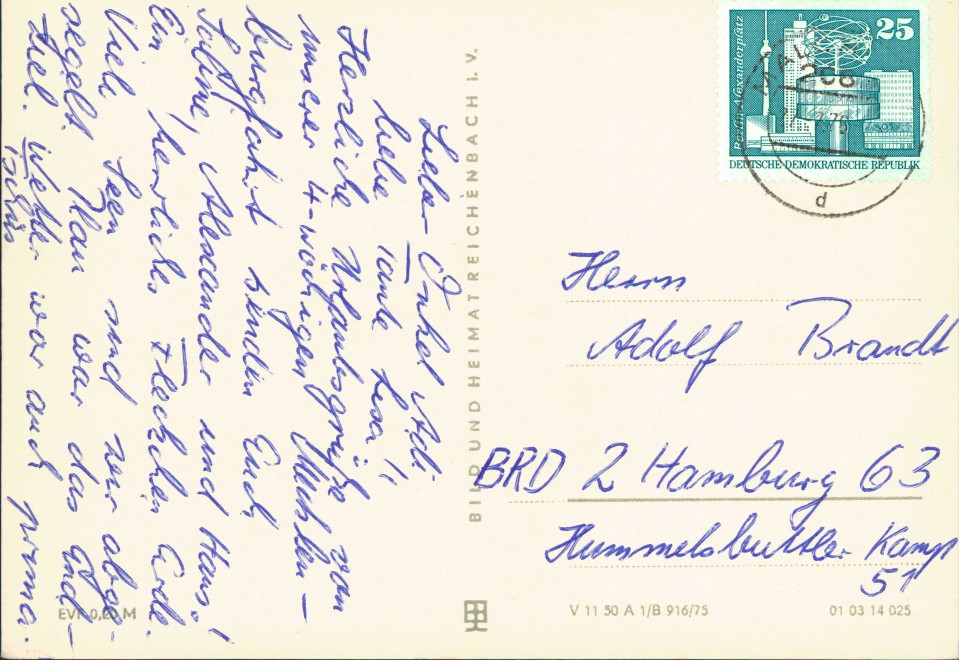 Lieber Onkel Adi
liebe Tante Lisa!
Herzliche Urlaubsgrüße von
unserer 4-wöchigen Mecklen-
burgfahrt senden Euch
Sabine, Alexander und Hans!
Ein herrliches Fleckchen Erde.
Viel Seen und wir abge-
segelt. Plau war das End-
ziel. Wetter war auch prima.
Tschüs
BILD UND HEIMAT REICHENBACH i. V.
EVP 0,20 M
25
Berlin-Alexanderplatz
DEUTSCHE DEMOKRATISCHE REPUBLIK
208
d
Herrn
Adolf Brandt
BRD 2 Hamburg 63
Hummelsbüttler Kamp
51
V 11 50 A 1/B 916/75
01 03 14 025